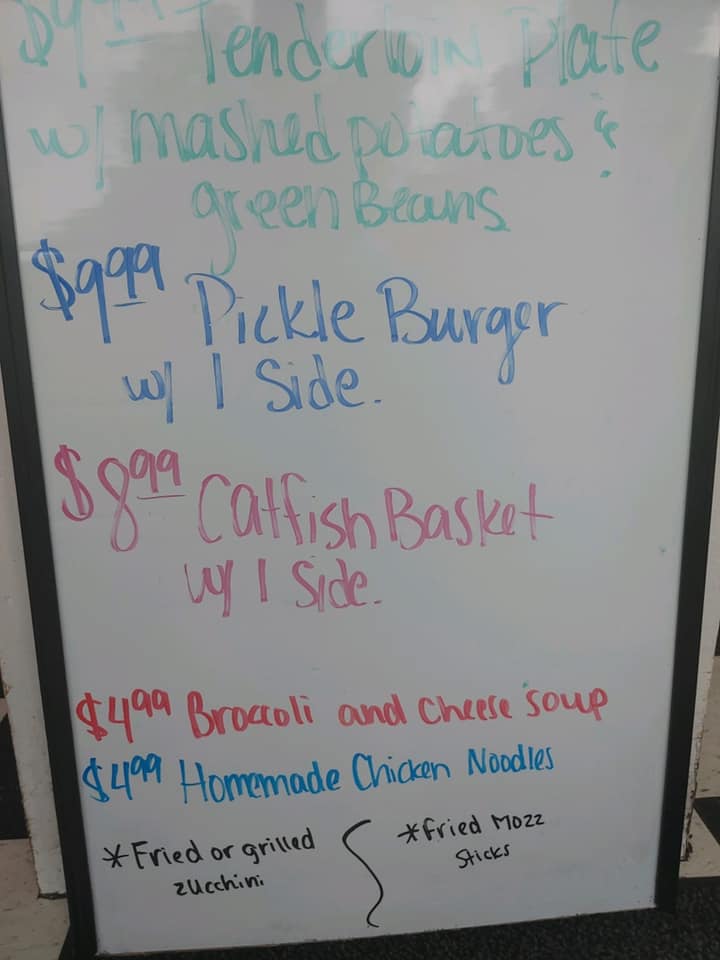 $9.99 Tenderloin Plate
w/ mashed potatoes &
green Beans
$9.99 Pickle Burger
w/ 1 Side.
$8.99 Catfish Basket
w/ 1 Side.
$4.99 Broccoli and Cheese Soup
$4.99 Homemade Chicken Noodles
*Fried or grilled
zucchini
*Fried Mozz
Sticks